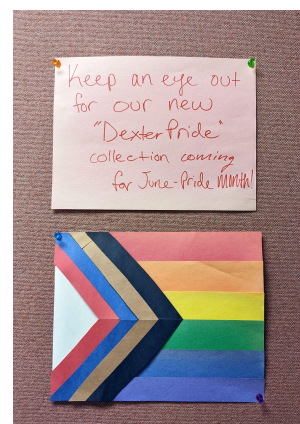 Keep an eye out
for our new
"Dexter Pride"
collection coming
for June-Pride month!